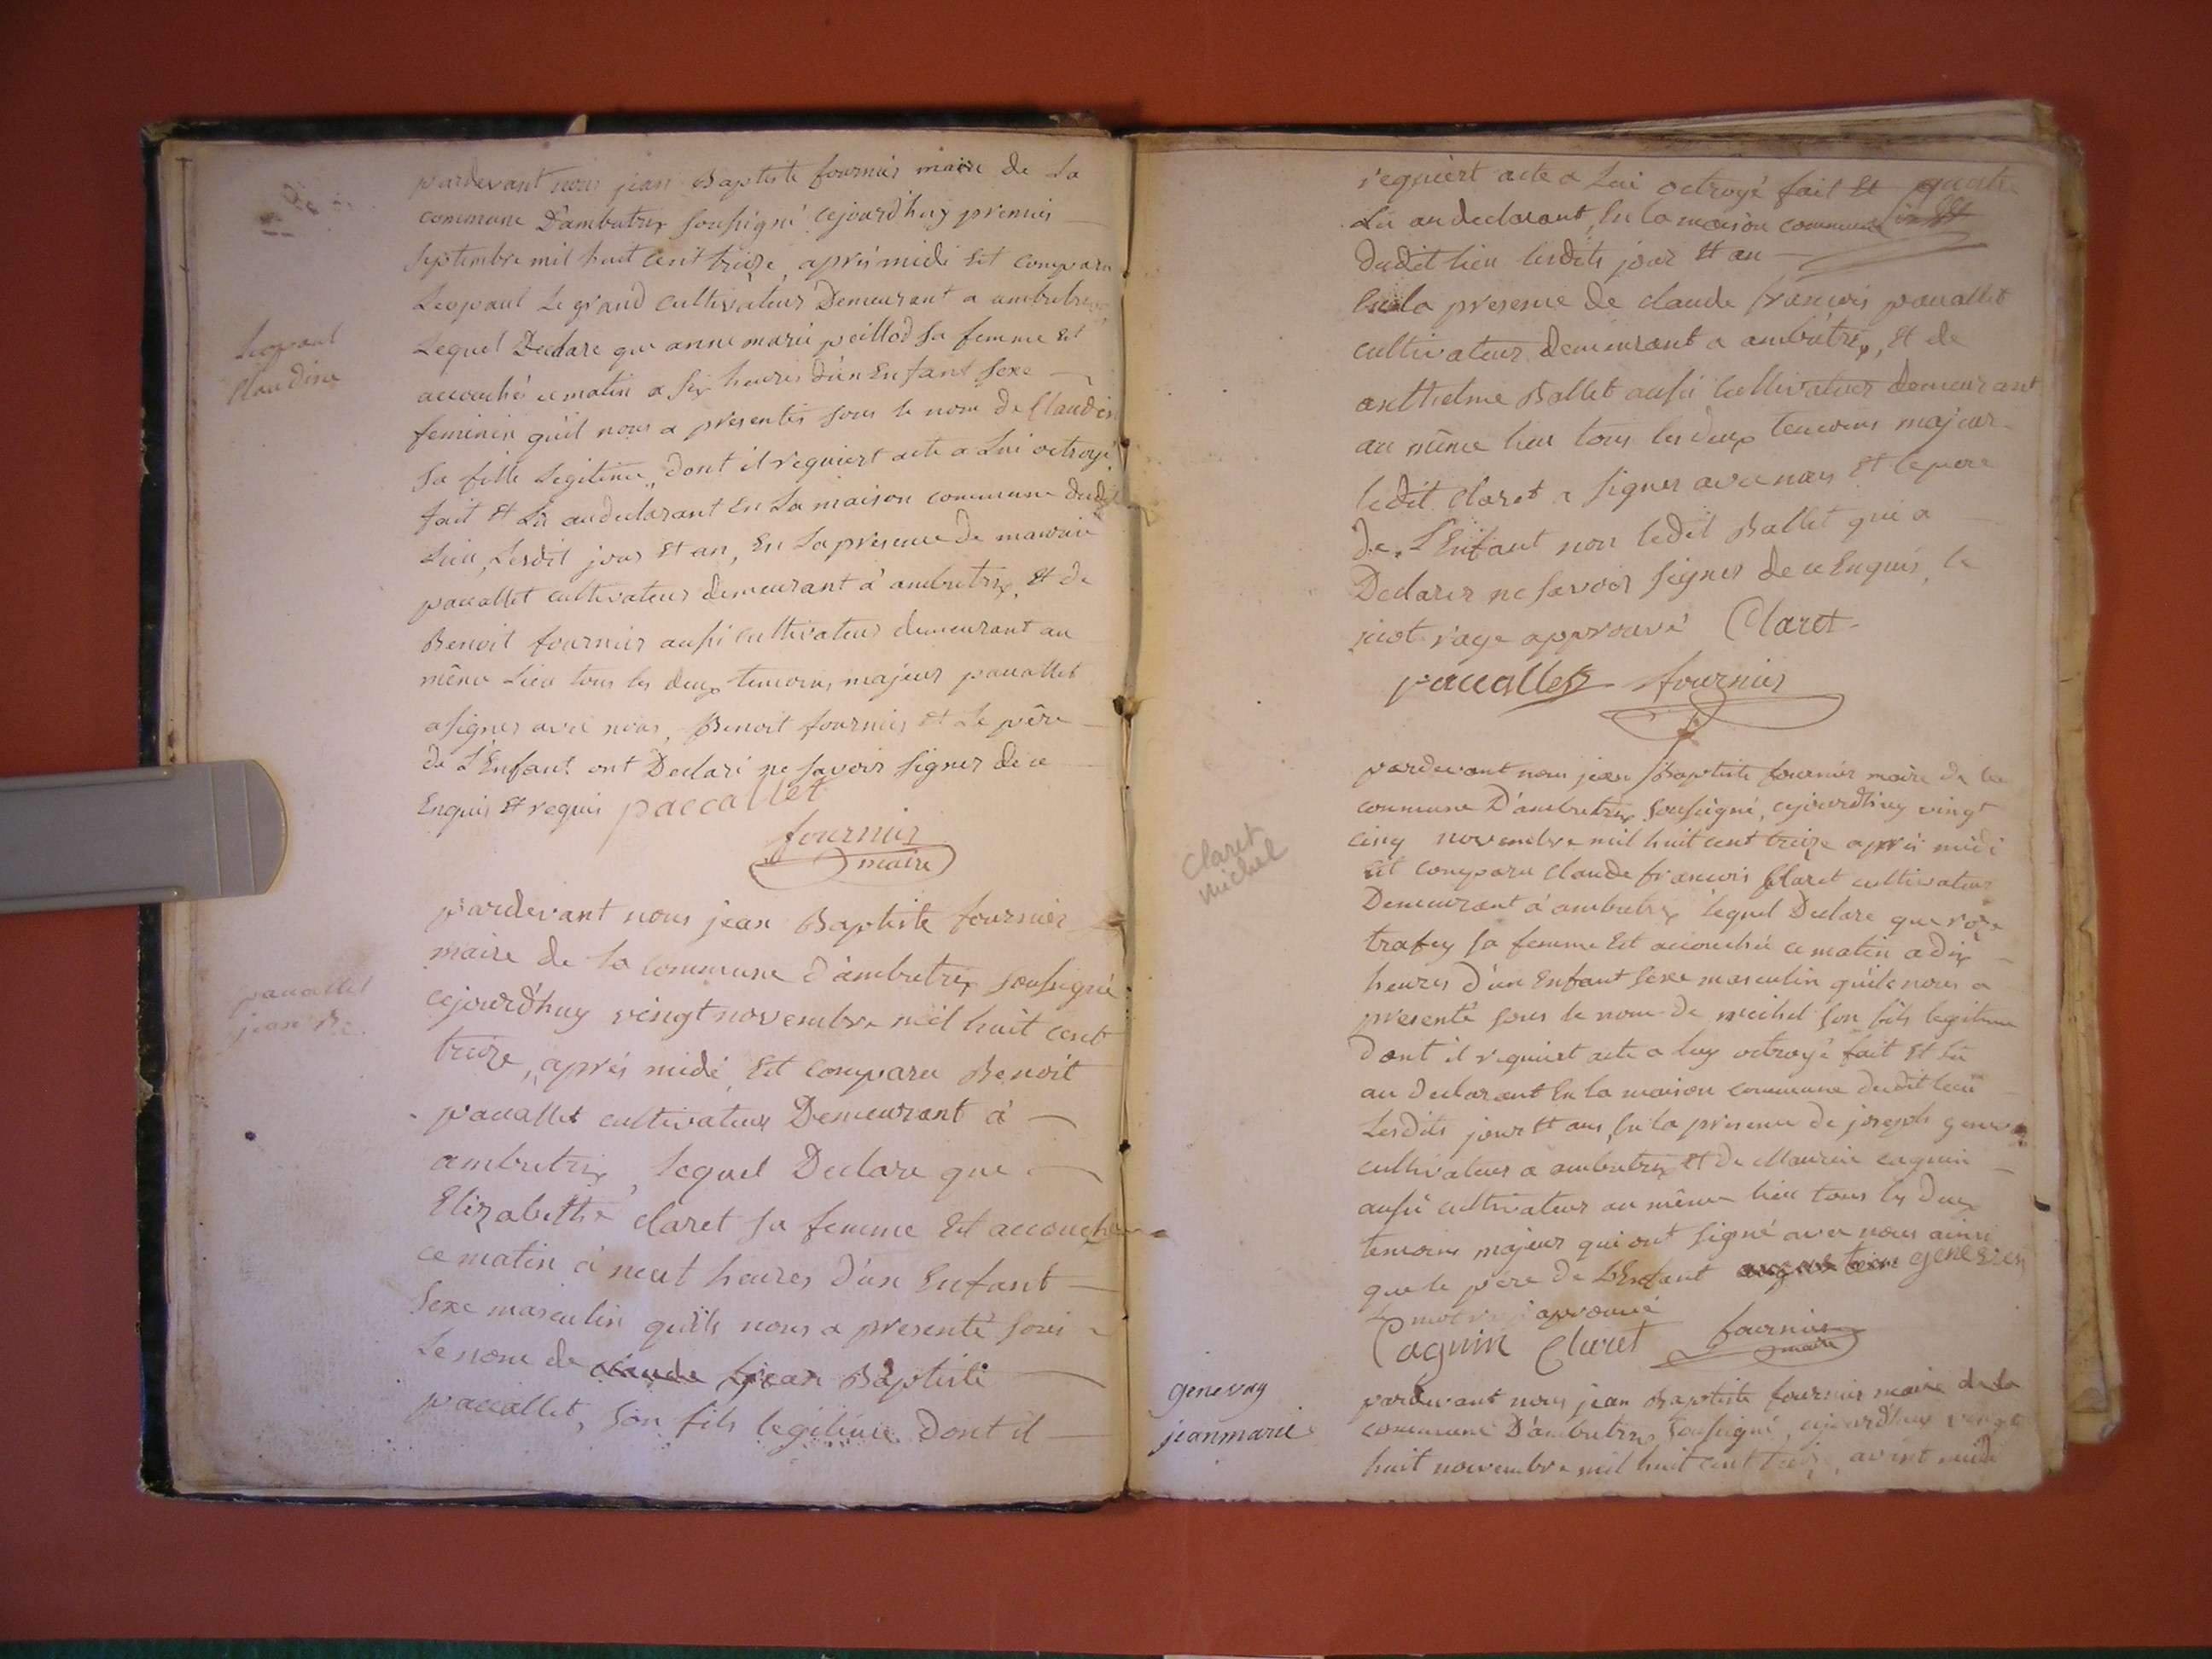 pardevant nous jean Baptiste fournier maire de La
commune D'ambutrix soussigné cejourd'huy premier
septembre mil huit cent treize, aprés midi Est comparu
Leopaul Le grand cultivateur Demeurant a ambutrix,
Leopaul
Claudine
Lequel Declare que anne marie peillod sa femme Est
accouché ce matin a six heures d'un Enfant sexe
feminin qu'il nous a presentés sous le nom de Claudine
sa fille Legitime, dont il requiert acte a Lui octroyé
fait Et Lû au declarant En La maison commune dudit
Lieu, Lesdit jour Et an, En La presence de maurice
paccallet cultivateur demeurant á ambutrix, Et de
Benoit fournier aussi cultivateur demeurant au
même Lieu tous les deux temoins majeur paccallet
a signer avec nous, Benoit fournier Et Le pêre
de L'Enfant ont Declaré ne savoir signer de ce
Enquis Et requis paccallet
fournier
maire
pardevant nous jean Baptiste fournier
maire de la commune d'ambutrix soussigné
paccallet
jean Bte.
cejourd'huy vingt novembre mil huit cent
treize, aprés midi, Est comparu Benoit
paccallet cultivateur Demeurant á
ambutrix, lequel Declare que
Elizabethe claret sa femme Est accouchée
ce matin á neuf heures d'un Enfant
sexe masculin qu'ils nous a presenté sous
Le nom de claude jean Baptiste
paccallet, son fils legitime Dont il
requiert acte a Lui octroyé fait Et
Lû au declarant, En la maison commune
dudit lieu lesdits jour Et an
En la presence de claude francois paccallet
cultivateur demeurant a ambutrix, Et de
anthelme Ballet aussi cultivateur demeurant
au même lieu tous les deux temoins majeur
ledit Claret a signer avec nous Et le pere
de L'Enfant non ledit Ballet qui a
Declarer ne savoir signer de ce Enquis, le
mot raye approuvé Claret
paccallet fournier
pardevant nous jean Baptiste fournier maire de la
commune D'ambutrix soussigné, cejourd'huy vingt
cinq novembre mil huit cent treize aprés midi
Claret
michel
Est comparu claude francois Claret cultivateur
Demeurant á ambutrix lequel Declare que roze
trafey sa femme Est accouchée ce matin a dix
heures d'un Enfant sexe masculin qu'ils nous a
presenté sous le nom de michel son fils legitime
dont il requiert acte a luy octroyé fait Et Lû
au declarant En la maison commune dudit lieu
Lesdits jour Et an, En la presence de joseph
cultivateur a ambutrix Et de Maurice cagnin
aussi cultivateur au même lieu tous les deux
temoins majeur qui ont signé avec nous ainsi
que le père de L'Enfant
Le mot approuvé
Cagnin Claret fournier
maire
genevay
jean marie
pardevant nous jean Baptiste fournier maire de La
commune D'ambutrix soussigné, cejourd'huy vingt
huit novembre mil huit cent treize, avant midi